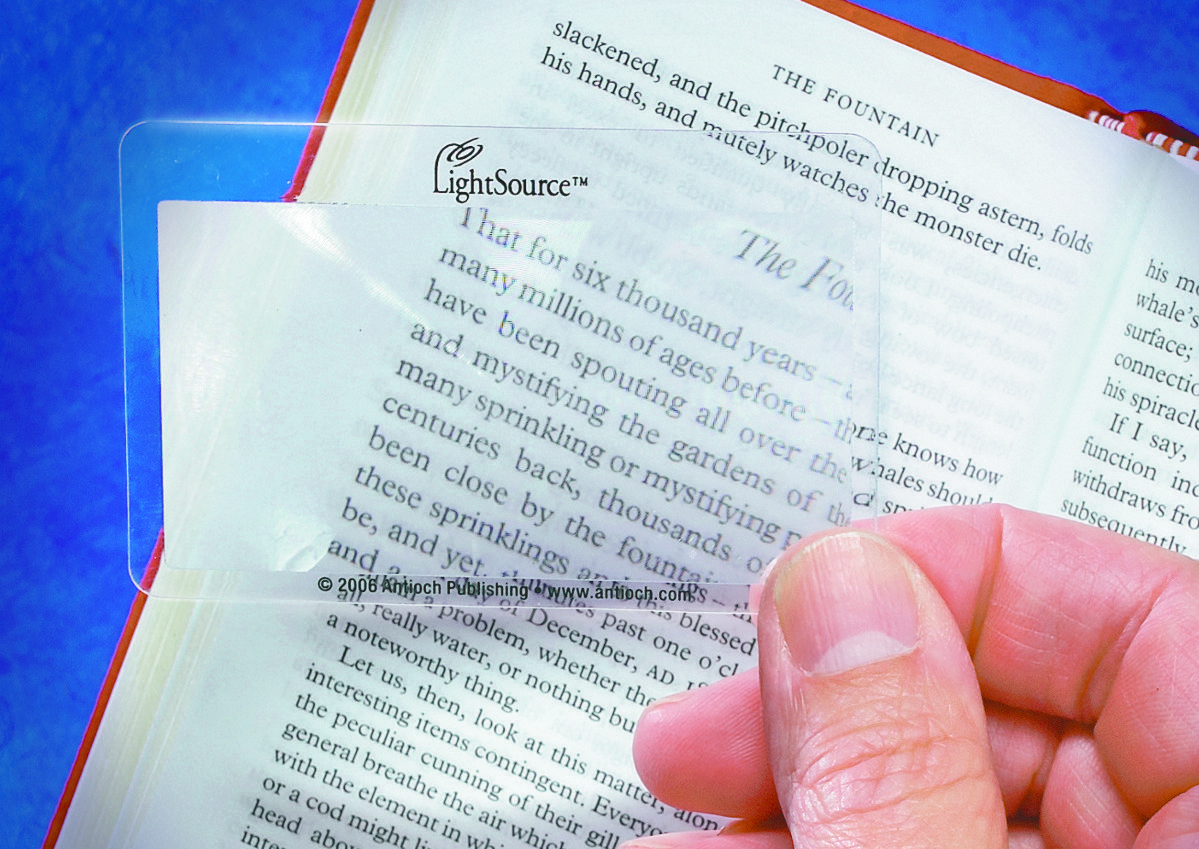 THE FOUNTAIN
slackened, and the pitchpoler dropping astern, folds
his hands, and mutely watches the monster die.
LightSource™
The Fou
That for six thousand years –
many millions of ages before – th
have been spouting all over the
and mystifying the gardens of the
many sprinkling or mystifying p
centuries back, thousands o
been close by the fountai
these sprinklings and
be, and yet,
and a
one knows how
whales should
© 2006 Antioch Publishing • www.antioch.com
this blessed
of December, AD
past one o'cl
a problem, whether the
really water, or nothing bu
a noteworthy thing.
Let us, then, look at this matter, alon
interesting items contingent. Everyo
the peculiar cunning of their gill
general breathe the air which
with the element in wh
or a cod might li
head abov
inte
his mo
whale's
surface;
connectio
his spiracle
If I say,
function ind
withdraws fro
subsequently